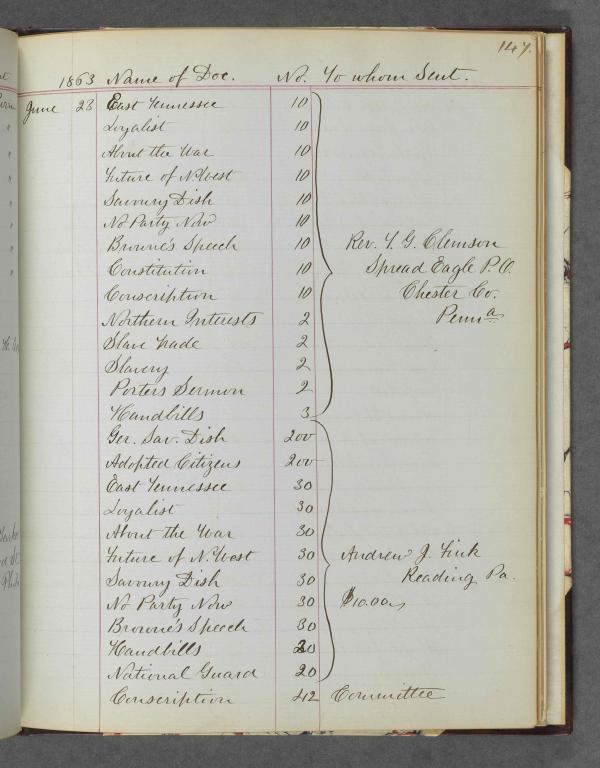 147.
1863 Name of Doc. No. To whom Sent.
June 23 East Tennessee 10
Loyalist 10
About the War 10
Future of N. West 10
Savoury Dish 10
No Party Now 10
Browne's Speech 10 Rev. T. G. Clemson
Constitution 10 Spread Eagle P.O.
Conscription 10 Chester Co.
Northern Interests 2 Penna
Slave Trade 2
Slavery 2
Porters Sermon 2
Handbills 3
Ger. Sav. Dish 200
Adopted Citizens 200
East Tennessee 30
Loyalist 30
About the War 30
Future of N. West 30 Andrew J. Fink
Savoury Dish 30 Reading Pa.
No Party Now 30 $10.00
Browne's Speech 30
Handbills 20
National Guard 20
Conscription 42 Committee